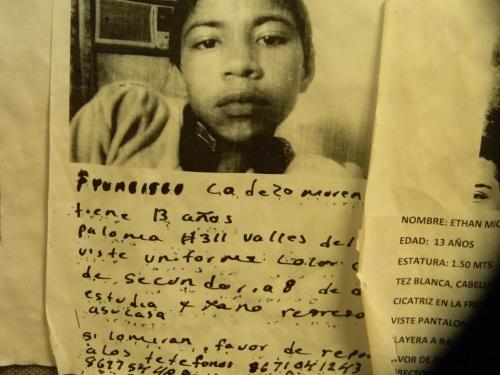 Francisco Cadezo moren
tiene 13 años
paloma #311 valles del
viste uniforme color
de secundaria 8 de
estudia y ya no regreso
asucasa
si lomiran favor de repo
alos telefonos 8671041243
NOMBRE: ETHAN MIC
EDAD: 13 AÑOS
ESTATURA: 1.50 MTS
TEZ BLANCA, CABELL
CICATRIZ EN LA FRE
VISTE PANTALON
LAYERA A RA
VOR DE